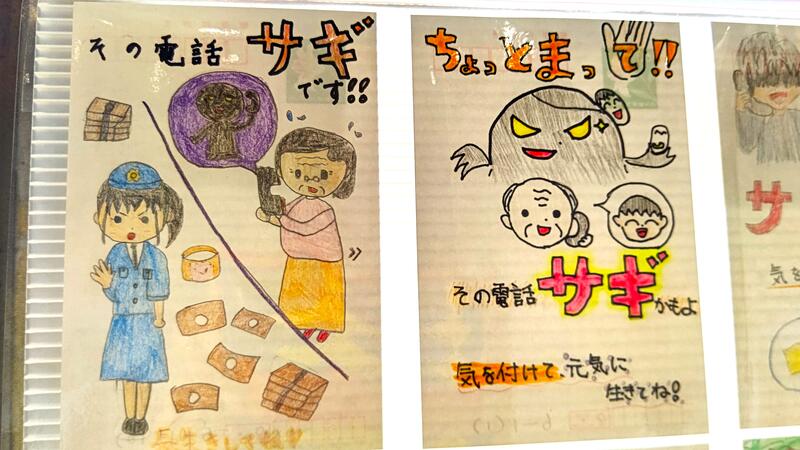 その電話 サギ
です!!
長生きしてね!!
ちょっとまって!!
その電話 サギかもよ
気を付けて、元気に
生きてね!
サ
気を